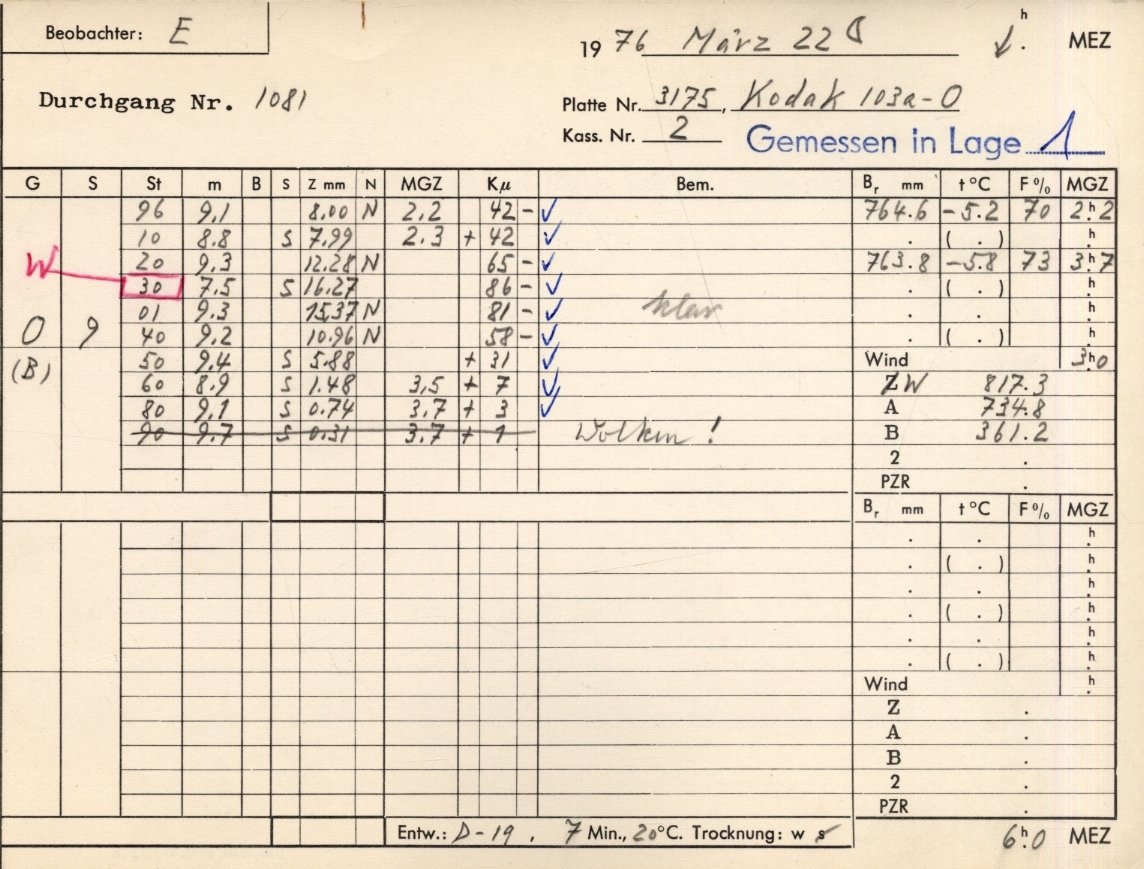 Beobachter: E
1976 März 22 h. MEZ
Durchgang Nr. 1081
Platte Nr. 3175, Kodak 103a-O
Kass. Nr. 2
Gemessen in Lage 1
G S St m B S Z mm N MGZ Kμ Bem. Br mm t °C F % MGZ
96 9.1 8.00 N 2.2 42 - ✓ 764.6 -5.2 70 2h.2
10 8.8 S 7.99 2.3 + 42 ✓ . ( . ) h.
W 20 9.3 12.28 N 65 - ✓ 763.8 -5.8 73 3h.7
30 7.5 S 16.27 86 - ✓ . ( . ) h.
01 9.3 15.37 N 81 - ✓ klar . . h.
O 9 40 9.2 10.96 N 58 - ✓ . ( . ) h
(B) 50 9.4 S 5.88 + 31 ✓ Wind 3h.0
60 8.9 S 1.48 3.5 + 7 ✓ Z W 817.3
80 9.1 S 0.74 3.7 + 3 ✓ A 734.8
90 9.7 S 0.31 3.7 + 1 Wolken ! B 361.2
2 .
PZR .
Br mm t °C F % MGZ
. . h.
. ( . ) h.
. . h.
. ( . ) h.
. . h.
. ( . ) h.
Wind h.
Z .
A .
B .
2 .
PZR .
Entw.: D-19 . 7 Min., 20°C. Trocknung: w s
6h.0 MEZ